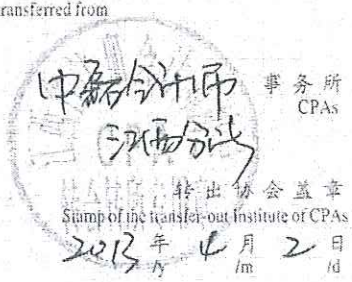 ransferred from
中磊会计师 事务所
CPAs
江西分所
转出协会盖章
Stamp of the transfer-out Institute of CPAs
2013 年 4 月 2 日
/y /m /d